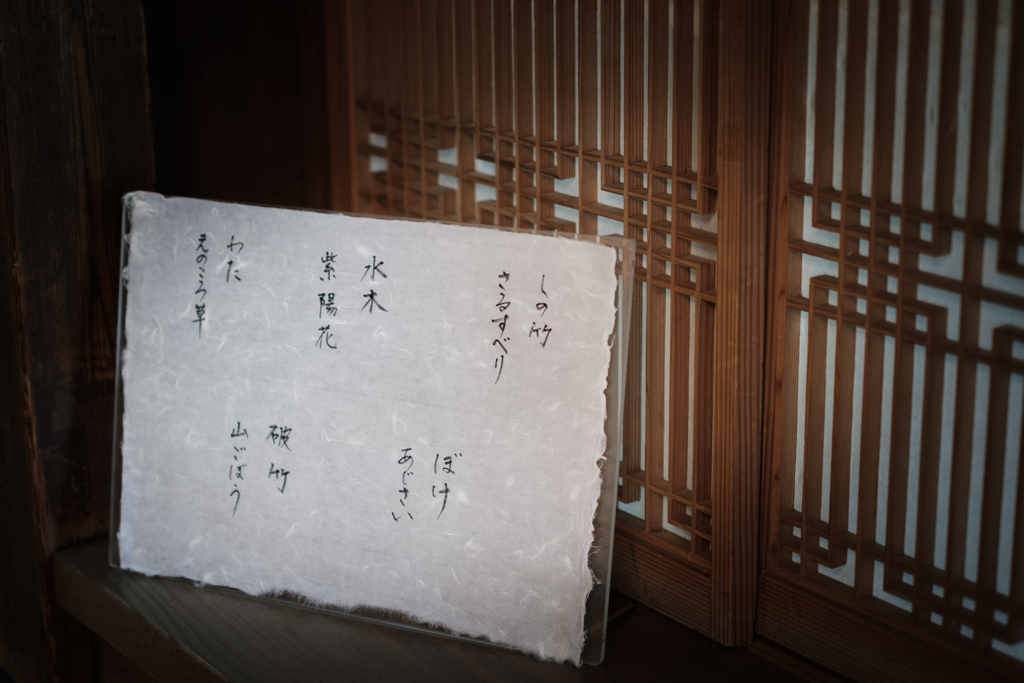 しの竹
さるすべり
ぼけ
あじさい
水木
紫陽花
破竹
山ごぼう
わた
えのころ草